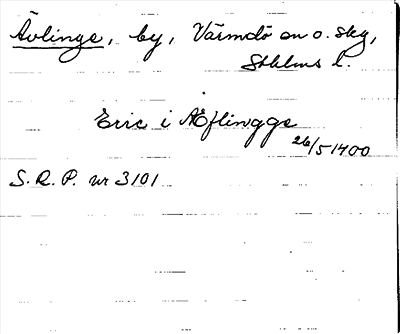 Ävlinge, by, Värmdö en o. skg,
Sthlms l.
Eric i Æflingge
26/5 1400
S. R. P. nr 3101